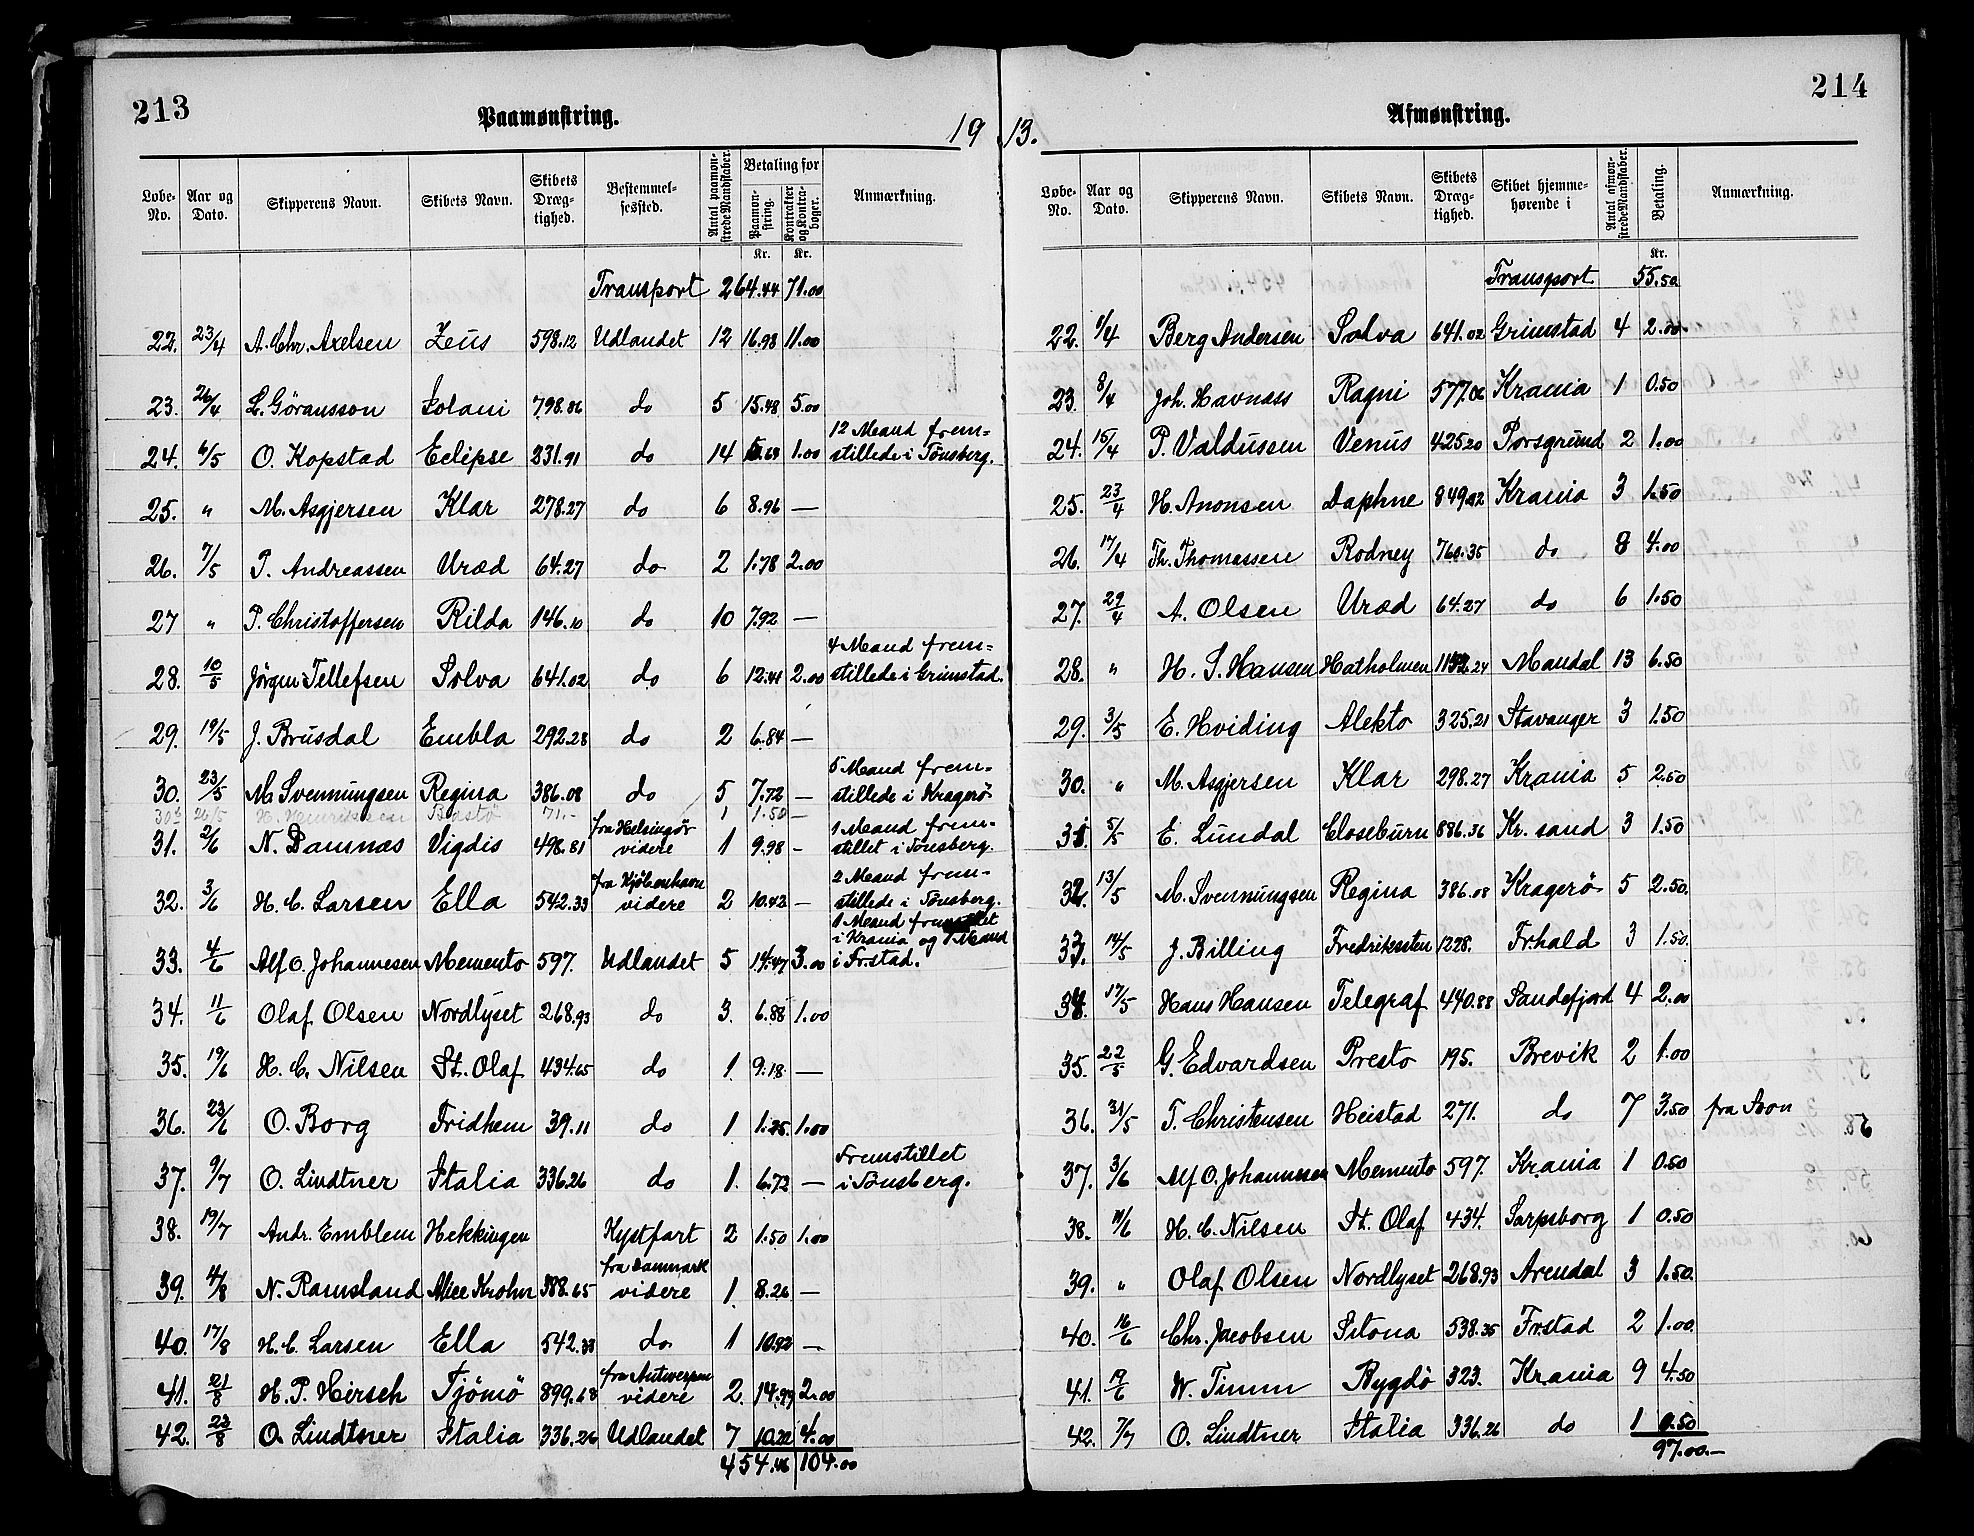 213
Paamønstring.
19
Løbe-No. | Aar og Dato. | Skipperens Navn. | Skibets Navn. | Skibets Dræg-tighed. | Bestemmel-sessted. | Antal paamøn-strede Mandskaber. | Betaling for Paamøn-string. Kr. | Kontrakter og Kontra-bøger. Kr. | Anmærkning.
Transport 264.44 71.00
22. 23/4 A. Chr. Axelsen Zeus 598.12 Udlandet 12 16.98 11.00
23. 26/4 L. Göransson Solani 798.06 do 5 15.48 5.00
24. 6/5 O. Kopstad Eclipse 231.91 do 14 1.00 12 Mand frem-stillede i Tönsberg.
25. " M. Asgjersen Klar 278.27 do 6 8.96 —
26. 7/5 P. Andreassen Uræd 64.27 do 2 1.78 2.00
27 " P. Christoffersen Rilda 146.10 do 10 7.92 —
28. 10/5 Jörgen Tellefsen Solva 641.02 do 6 12.41 2.00 4 Mand frem-stillede i Grimstad.
29. 19/5 J. Brusdal Embla 292.28 do 2 6.84 —
30. 23/5 M. Svennungsen Regina 386.08 do 5 7.72 — 5 Mand frem-stillede i Kragerö
26/5 H. Henriksen Bastø 71.- 1 1.50 —
31. 2/6 N. Damnæs Vigdis 498.81 fra Helsingör videre 1 9.98 - 1 Mand frem-stillet i Tönsberg.
32. 3/6 H. C. Larsen Ella 542.33 fra Kjöbenhavn videre 2 10.42 — 2 Mand frem-stillede i Tönsberg.
33. 4/6 Alf O. Johannesen Memento 597. Udlandet 5 14.47 3.00 1 Mand fremstillet i Krania og 1 Mand i Fr.stad.
34. 11/6 Olaf Olsen Nordlyset 268.93 do 3. 6.88 1.00
35. 19/6 H. C. Nilsen St. Olaf 434.65 do 1. 9.18 —
36. 23/6 O. Borg Fridhem 39.11 do 1 1.25. 1.00
37. 9/7 O. Lindtner Italia 336.26 do 1. 6.72 — Fremstillet i Tönsberg.
38. 19/7 Andr. Emblem Hekkingen Kystfart 2 1.50 1.00
39. 4/8 N. Ramsland Alice Krohn 388.65 fra Danmark videre 1. 8.26 —
40. 17/8 H. C. Larsen Ella 542.33 do. 1 10.92 —
41. 21/8 H. P. Hirsch Tjömö 899.68 fra Antwerpen videre 2. 14.99 2.00
42. 23/8 O. Lindtner Italia 336.26 Udlandet 7 10.22 4.00
454.46 104.00
214
Afmønstring.
13.
Løbe-No. | Aar og Dato. | Skipperens Navn. | Skibets Navn. | Skibets Dræg-tighed. | Skibet hjemme-hørende i | Antal afmøn-strede Mandskaber. | Betaling. Kr. | Anmærkning.
Transport 55.50
22. 1/4 Berg Andersen Solva 641.02 Grimstad 4 2.00
23. 8/4 Joh. Havnass Ragni 577.06 Krania 1 0.50
24. 15/4 P. Valdussen Venus 425.20 Porsgrund 2 1.00
25. 23/4 H. Anonsen Daphne 849.02 Krania 3 1.50
26. 17/4 Th. Thomassen Rodney 760.35 do 8 4.00
27. 29/4 A. Olsen Uræd 64.27 do 6 1.50
28. " H. S. Hansen Hatholmen Mandal 13 6.50
29. 3/5 E. Hviding Alekto 325.21 Stavanger 3 1.50
30. " M. Asgjersen Klar 298.27 Krania 5 2.50
31. 5/5 E. Lundal Closeburn 886.36 Kr. sand 3 1.50
32. 13/5 M. Svennungsen Regina 386.08 Kragerö 5 2.50.
33. 14/5 J. Billing Fredriksten 1228. Fr.hald 3 1.50.
34. 17/5 Hans Hansen Telegraf 440.88 Sandefjord 4 2.00
35. 22/5 G. Edvardsen Presto 195. Brevik 2 1.00
36. 31/5 T. Christensen Heistad 271. do 7 3.50 fra Soon
37. 3/6 Alf O. Johannesen Memento 597. Krania 1 0.50
38. 11/6 H. C. Nilsen St. Olaf 434. Sarpsborg 1 0.50
39. " Olaf Olsen Nordlyset 268.93 Arendal 3 1.50.
40. 16/6 Chr. Jacobsen Sitona 538.35 Fr.stad 2 1.00.
41. 19/6 W. Timm Bygdö 323. Krania 9 4.50
42. 7/7 O. Lindtner Italia 336.26 do 1 0.50
97.00.—